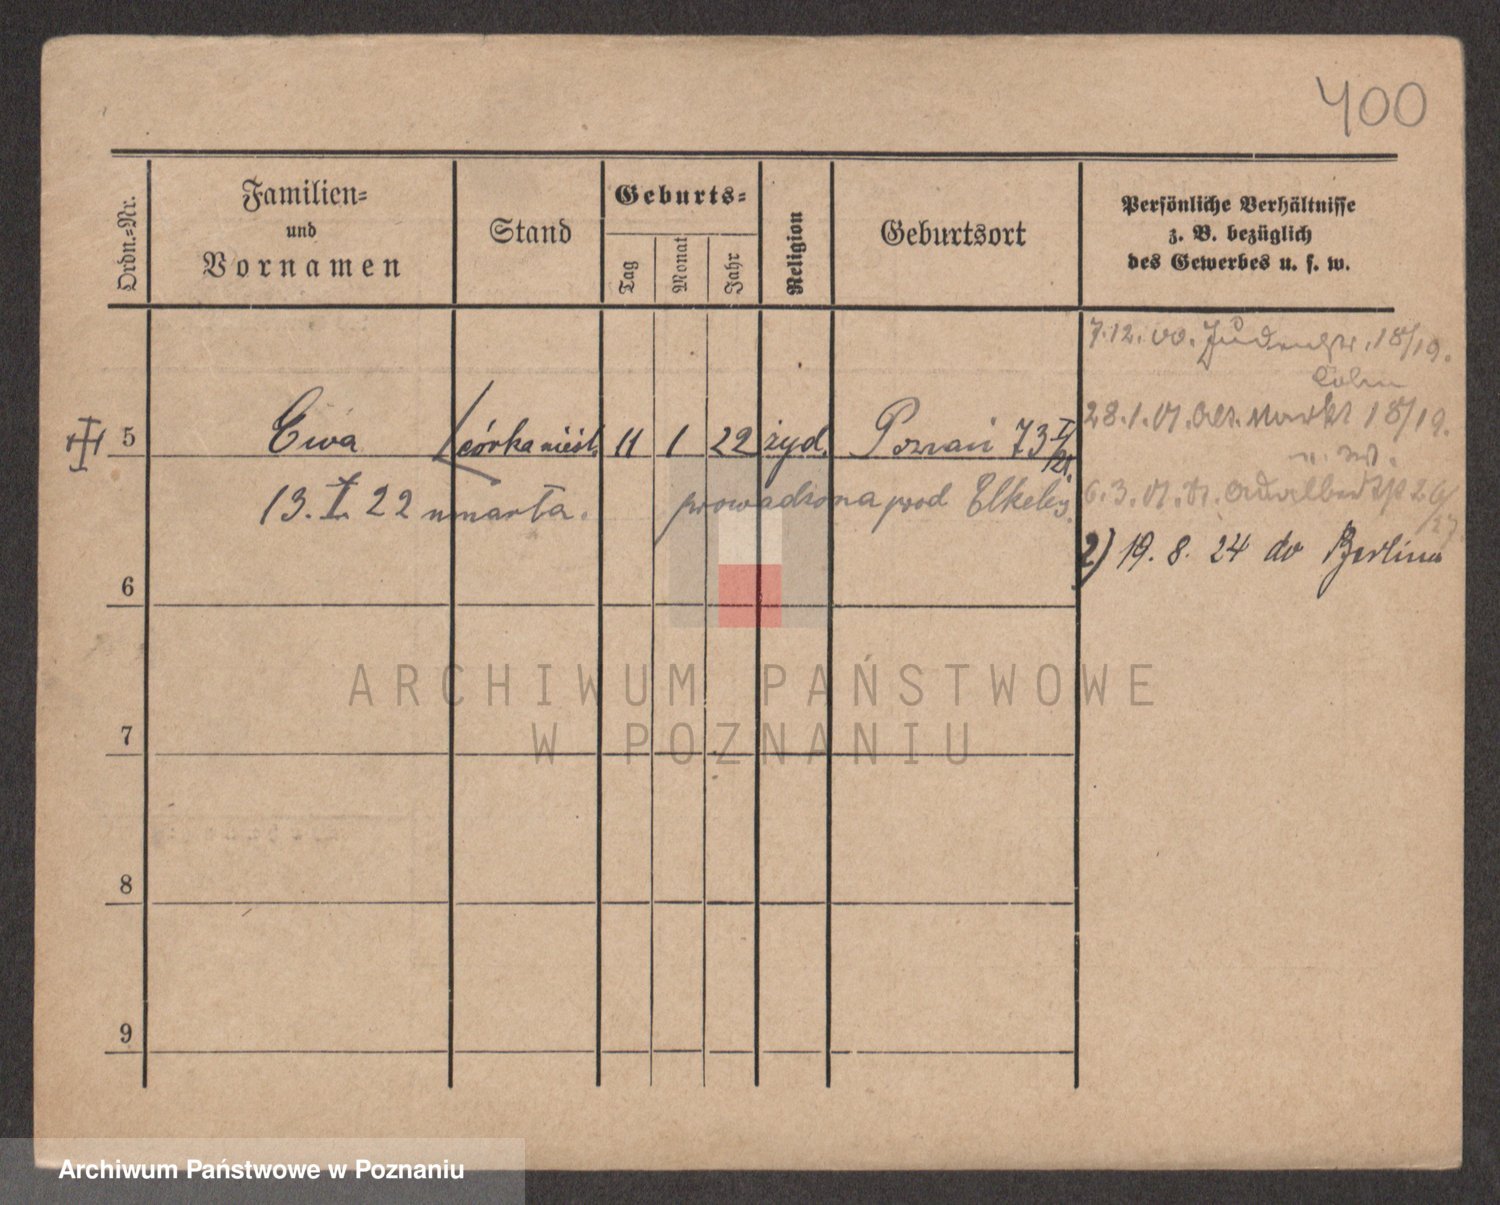 400
Ordn.-Nr.
Familien-
und
Vornamen
Stand
Geburts-
Tag
Monat
Jahr
Religion
Geburtsort
Persönliche Verhältnisse
z. B. bezüglich
des Gewerbes u. s. w.
7.12.00. Judenstr. 18/19.
28.1.01. Alt. Markt 18/19.
5 Ewa córka nieśl. 11 1 22 żyd. Poznań 73 I/21.
13. I. 22 umarta. prowadzona pod Elkeles.
6.3.01. 26/27.
2) 19. 8. 24 do Berlina
6
7
8
9
ARCHIWUM PAŃSTWOWE
W POZNANIU
Archiwum Państwowe w Poznaniu